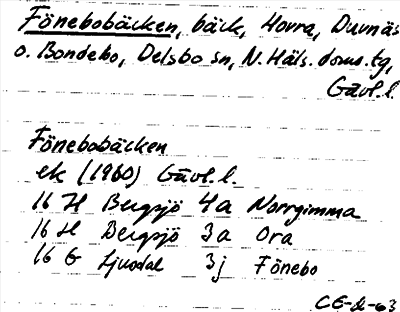 Fönebobäcken, bäck, Hovra, Duvnäs
o. Bondebo, Delsbo sn, N. Häls. doms.tg,
Gävl.l.
Fönebobäcken
ek (1960) Gävl.l.
16 H Bergsjö 4a Norrgimma
16 H Bergsjö 3a Ora
16 G Ljusdal 3j Fönebo
CE-d-63